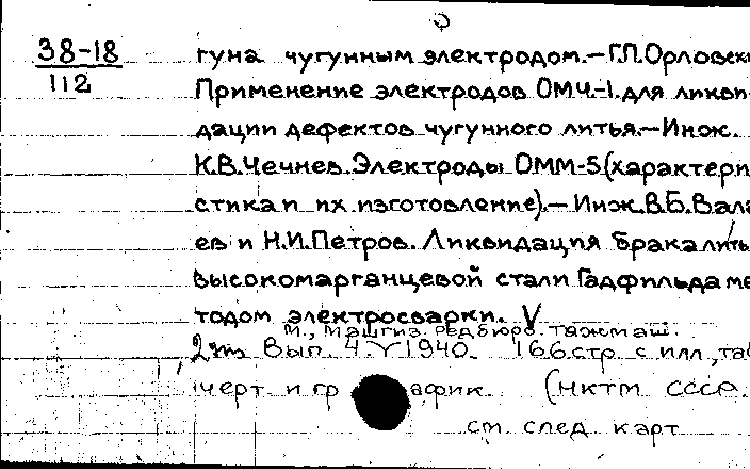 38-18
112
гуна чугунным электродом.—Г.П.Орловск
Применение электродов ОМЧ-1 для ликви-
дации дефектов чугунного литья.—Инж.
К.В.Чечнев. Электроды ОММ-5 (характери
стика и их изготовление).—Инж. В.Б.Вала
ев и Н.И.Петров. Ликвидация брака литья
высокомарганцевой стали Гадфильда ме
тодом электросварки. V
М., Машгиз. Редбюро. Тяжмаш.
Вып. 4. 1940. 166 стр. с илл., таб
черт и гр афик. (НКТМ СССР.
см. след. карт